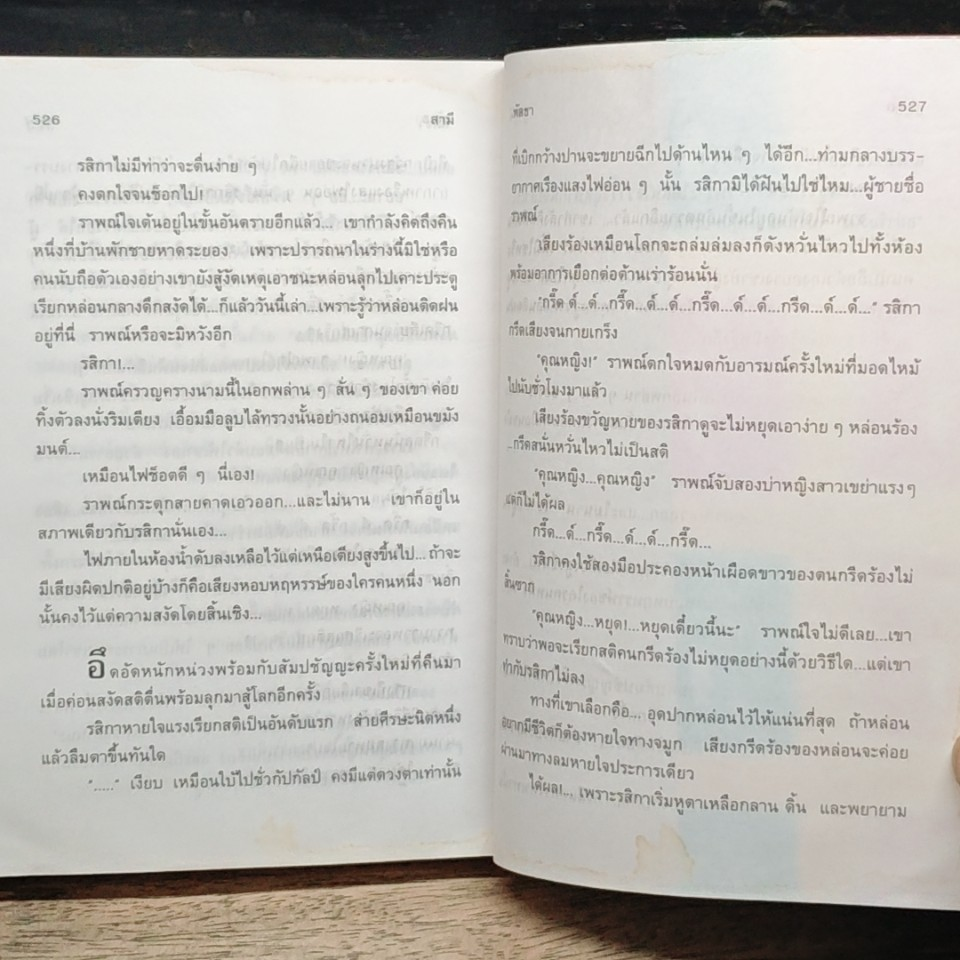 526
สามี
รสิกาไม่มีท่าว่าจะตื่นง่าย ๆ
คงตกใจจนช็อกไป!
ราพณ์ใจเต้นอยู่ในขั้นอันตรายอีกแล้ว... เขากำลังคิดถึงคืน
หนึ่งที่บ้านพักชายหาดระยอง เพราะปรารถนาในร่างนี้มิใช่หรือ
คนนับถือตัวเองอย่างเขายังสู้งัดเหตุเอาชนะหล่อนลุกไปเคาะประตู
เรียกหล่อนกลางดึกสงัดได้...ก็แล้ววันนี้เล่า...เพราะรู้ว่าหล่อนติดฝน
อยู่ที่นี่ ราพณ์หรือจะมิหวังอีก
รสิกา!...
ราพณ์ครวญครางนามนี้ในอกพล่าน ๆ สั่น ๆ ของเขา ค่อย
ทิ้งตัวลงนั่งริมเตียง เอื้อมมือลูบไล้ทรวงนั้นอย่างถนอมเหมือนขมัง
มนต์...
เหมือนไฟช็อตดี ๆ นี่เอง!
ราพณ์กระตุกสายคาดเอวออก...และไม่นาน เขาก็อยู่ใน
สภาพเดียวกับรสิกานั่นเอง...
ไฟภายในห้องน้ำดับลงเหลือไว้แต่เหนือเตียงสูงขึ้นไป...ถ้าจะ
มีเสียงผิดปกติอยู่บ้างก็คือเสียงหอบหฤหรรษ์ของใครคนหนึ่ง นอก
นั้นคงไว้แต่ความสงัดโดยสิ้นเชิง...
อึดอัดหนักหน่วงพร้อมกับสัมปชัญญะครั้งใหม่ที่คืนมา
เมื่อค่อนสงัดสติตื่นพร้อมลุกมาสู้โลกอีกครั้ง
รสิกาหายใจแรงเรียกสติเป็นอันดับแรก ส่ายศีรษะนิดหนึ่ง
แล้วลืมตาขึ้นทันใด
"....." เงียบ เหมือนใบ้ไปชั่วกัปกัลป์ คงมีแต่ดวงตาเท่านั้น
527
ที่เบิกกว้างปานจะขยายฉีกไปด้านไหน ๆ ได้อีก...ท่ามกลางบรร-
ยากาศเรืองแสงไฟอ่อน ๆ นั้น รสิกามิได้ฝันไปใช่ไหม...ผู้ชายชื่อ
ราพณ์
เสียงร้องเหมือนโลกจะถล่มล่มลงก็ดังหวั่นไหวไปทั้งห้อง
พร้อมอาการเยือกต่อต้านเร่าร้อนนั่น
"กรี๊ด ด์...ด์...กรี๊ด...ด์...ด์...กรี๊ด...ด์...ด์...กรีด...ด์...ด์..." รสิกา
กรีดเสียงจนกายเกร็ง
"คุณหญิง!" ราพณ์ตกใจหมดกับอารมณ์ครั้งใหม่ที่มอดไหม้
ไปนับชั่วโมงมาแล้ว
เสียงร้องขวัญหายของรสิกาดูจะไม่หยุดเอาง่าย ๆ หล่อนร้อง
...กรีดสนั่นหวั่นไหวไม่เป็นสติ
"คุณหญิง...คุณหญิง" ราพณ์จับสองบ่าหญิงสาวเขย่าแรงๆ
แต่ก็ไม่ได้ผล
กรี๊ด...ด์...กรี๊ด...ด์...ด์...กรี๊ด...
รสิกาคงใช้สองมือประคองหน้าเผือดขาวของตนกรีดร้องไม่
"คุณหญิง...หยุด!...หยุดเดี๋ยวนี้นะ" ราพณ์ใจไม่ดีเลย...เขา
ทราบว่าพอจะเรียกสติคนกรีดร้องไม่หยุดอย่างนี้ด้วยวิธีใด...แต่เขา
ทำกับรสิกาไม่ลง
ทางที่เขาเลือกคือ... อุดปากหล่อนไว้ให้แน่นที่สุด ถ้าหล่อน
อยากมีชีวิตก็ต้องหายใจทางจมูก เสียงกรีดร้องของหล่อนจะค่อย
ผ่านมาทางลมหายใจประการเดียว
ได้ผล!... เพราะรสิกาเริ่มหูตาเหลือกลาน ดิ้น และพยายาม